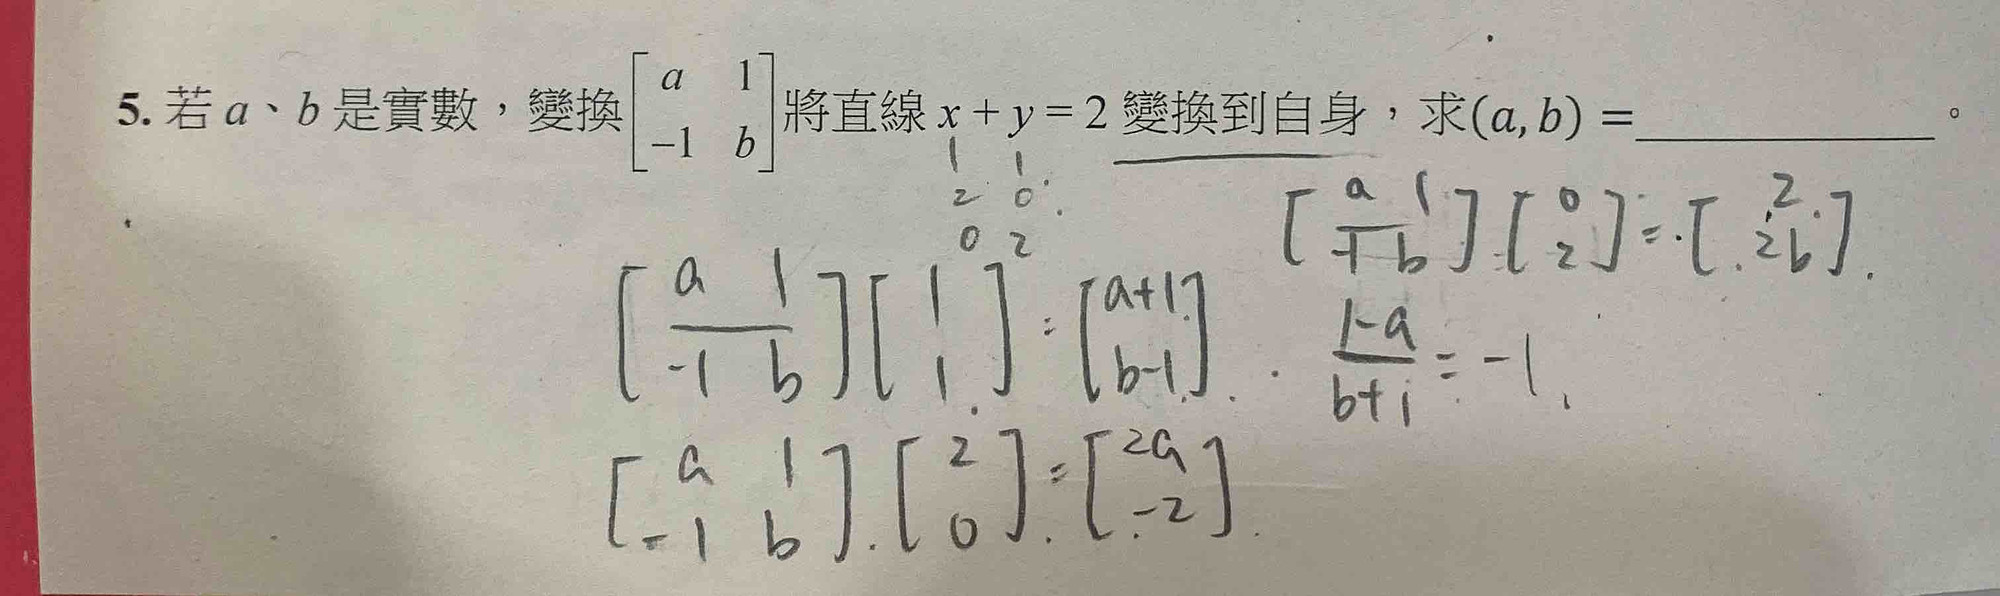 5. 若 a、b 是實數，變換[a 1 -1 b]將直線 x + y = 2 變換到自身，求(a, b) =＿＿＿＿＿＿。
1 1
2 0
0 2
[a 1 -1 b][0 2] = [2 2b]
[a 1 -1 b][1 1] = [a+1 b-1]
1-a / b+1 = -1
[a 1 -1 b][2 0] = [2a -2]